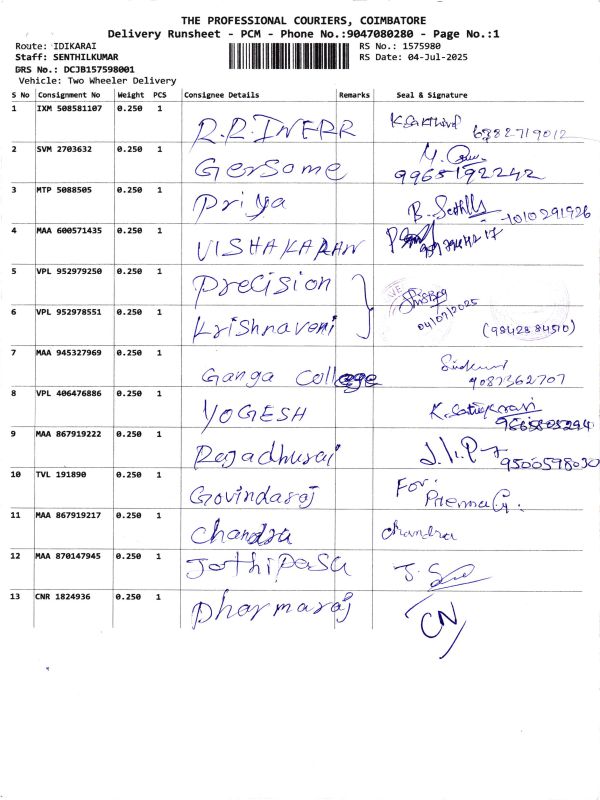 THE PROFESSIONAL COURIERS, COIMBATORE
Delivery Runsheet - PCM - Phone No.:9047080280 - Page No.:1
Route: IDIKARAI RS No.: 1575980
Staff: SENTHILKUMAR RS Date: 04-Jul-2025
DRS No.: DCJB157598001
Vehicle: Two Wheeler Delivery
S No Consignment No Weight PCS Consignee Details Remarks Seal & Signature
1 IXM 508581107 0.250 1 R.R.INERR 6382719012
2 SVM 2703632 0.250 1 Gersome 9965192242
3 MTP 5088505 0.250 1 Priya
4 MAA 600571435 0.250 1 VISHAKARAN
5 VPL 952979250 0.250 1 Precision 04/07/2025
6 VPL 952978551 0.250 1 Krishnaveni (9842884510)
7 MAA 945327969 0.250 1 Ganga College 9087362707
8 VPL 406476886 0.250 1 YOGESH 9665805294
9 MAA 867919222 0.250 1 Rajadhurai 9500598030
10 TVL 191890 0.250 1 Govindaraj For: Prema G.
11 MAA 867919217 0.250 1 Chandra Chandra
12 MAA 870147945 0.250 1 Jothi
13 CNR 1824936 0.250 1 Dharmaraj CN